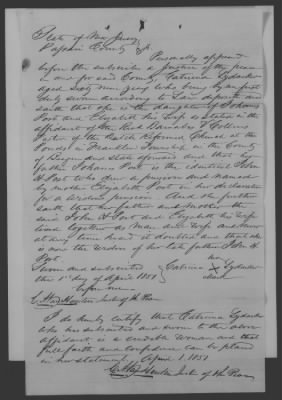 State of New Jersey
Passaic County } ss
Personally appeared
before the subscriber a Justice of the peace
in and for said County, Catrina Lydecker
aged sixty nine years who being by me first
duly sworn according to Law deposeth and
saith that she is the daughter of Johanis
Post and Elizabeth his Wife as stated in the
affidavit of the Revd Barnabas V Collins
Pastor of the Dutch Reformed Church at the
Ponds in Franklin Township in the County
of Bergen and state aforesaid and that her
father Johanis Post is the identical John
H Post who drew a pension and named
by mother Elizabeth Post in her declaration
for a widows pension. And she further
saith that her father and Mother the
said John H Post and Elizabeth his wife
lived together as Man and Wife and never
at any time heard it doubted and that she
is now the widow of her late father John H.
Post
Sworn and subscribed
the 1st day of April 1851
before me
Catrina her X mark Lydecker
Judge of the Pleas
I do hereby certify that Catrina Lydecker
who has subscribed and sworn to the above
affidavit is a credible woman and that
full faith and confidence can be placed
in her statement, April 1, 1851
Judge of the Pleas